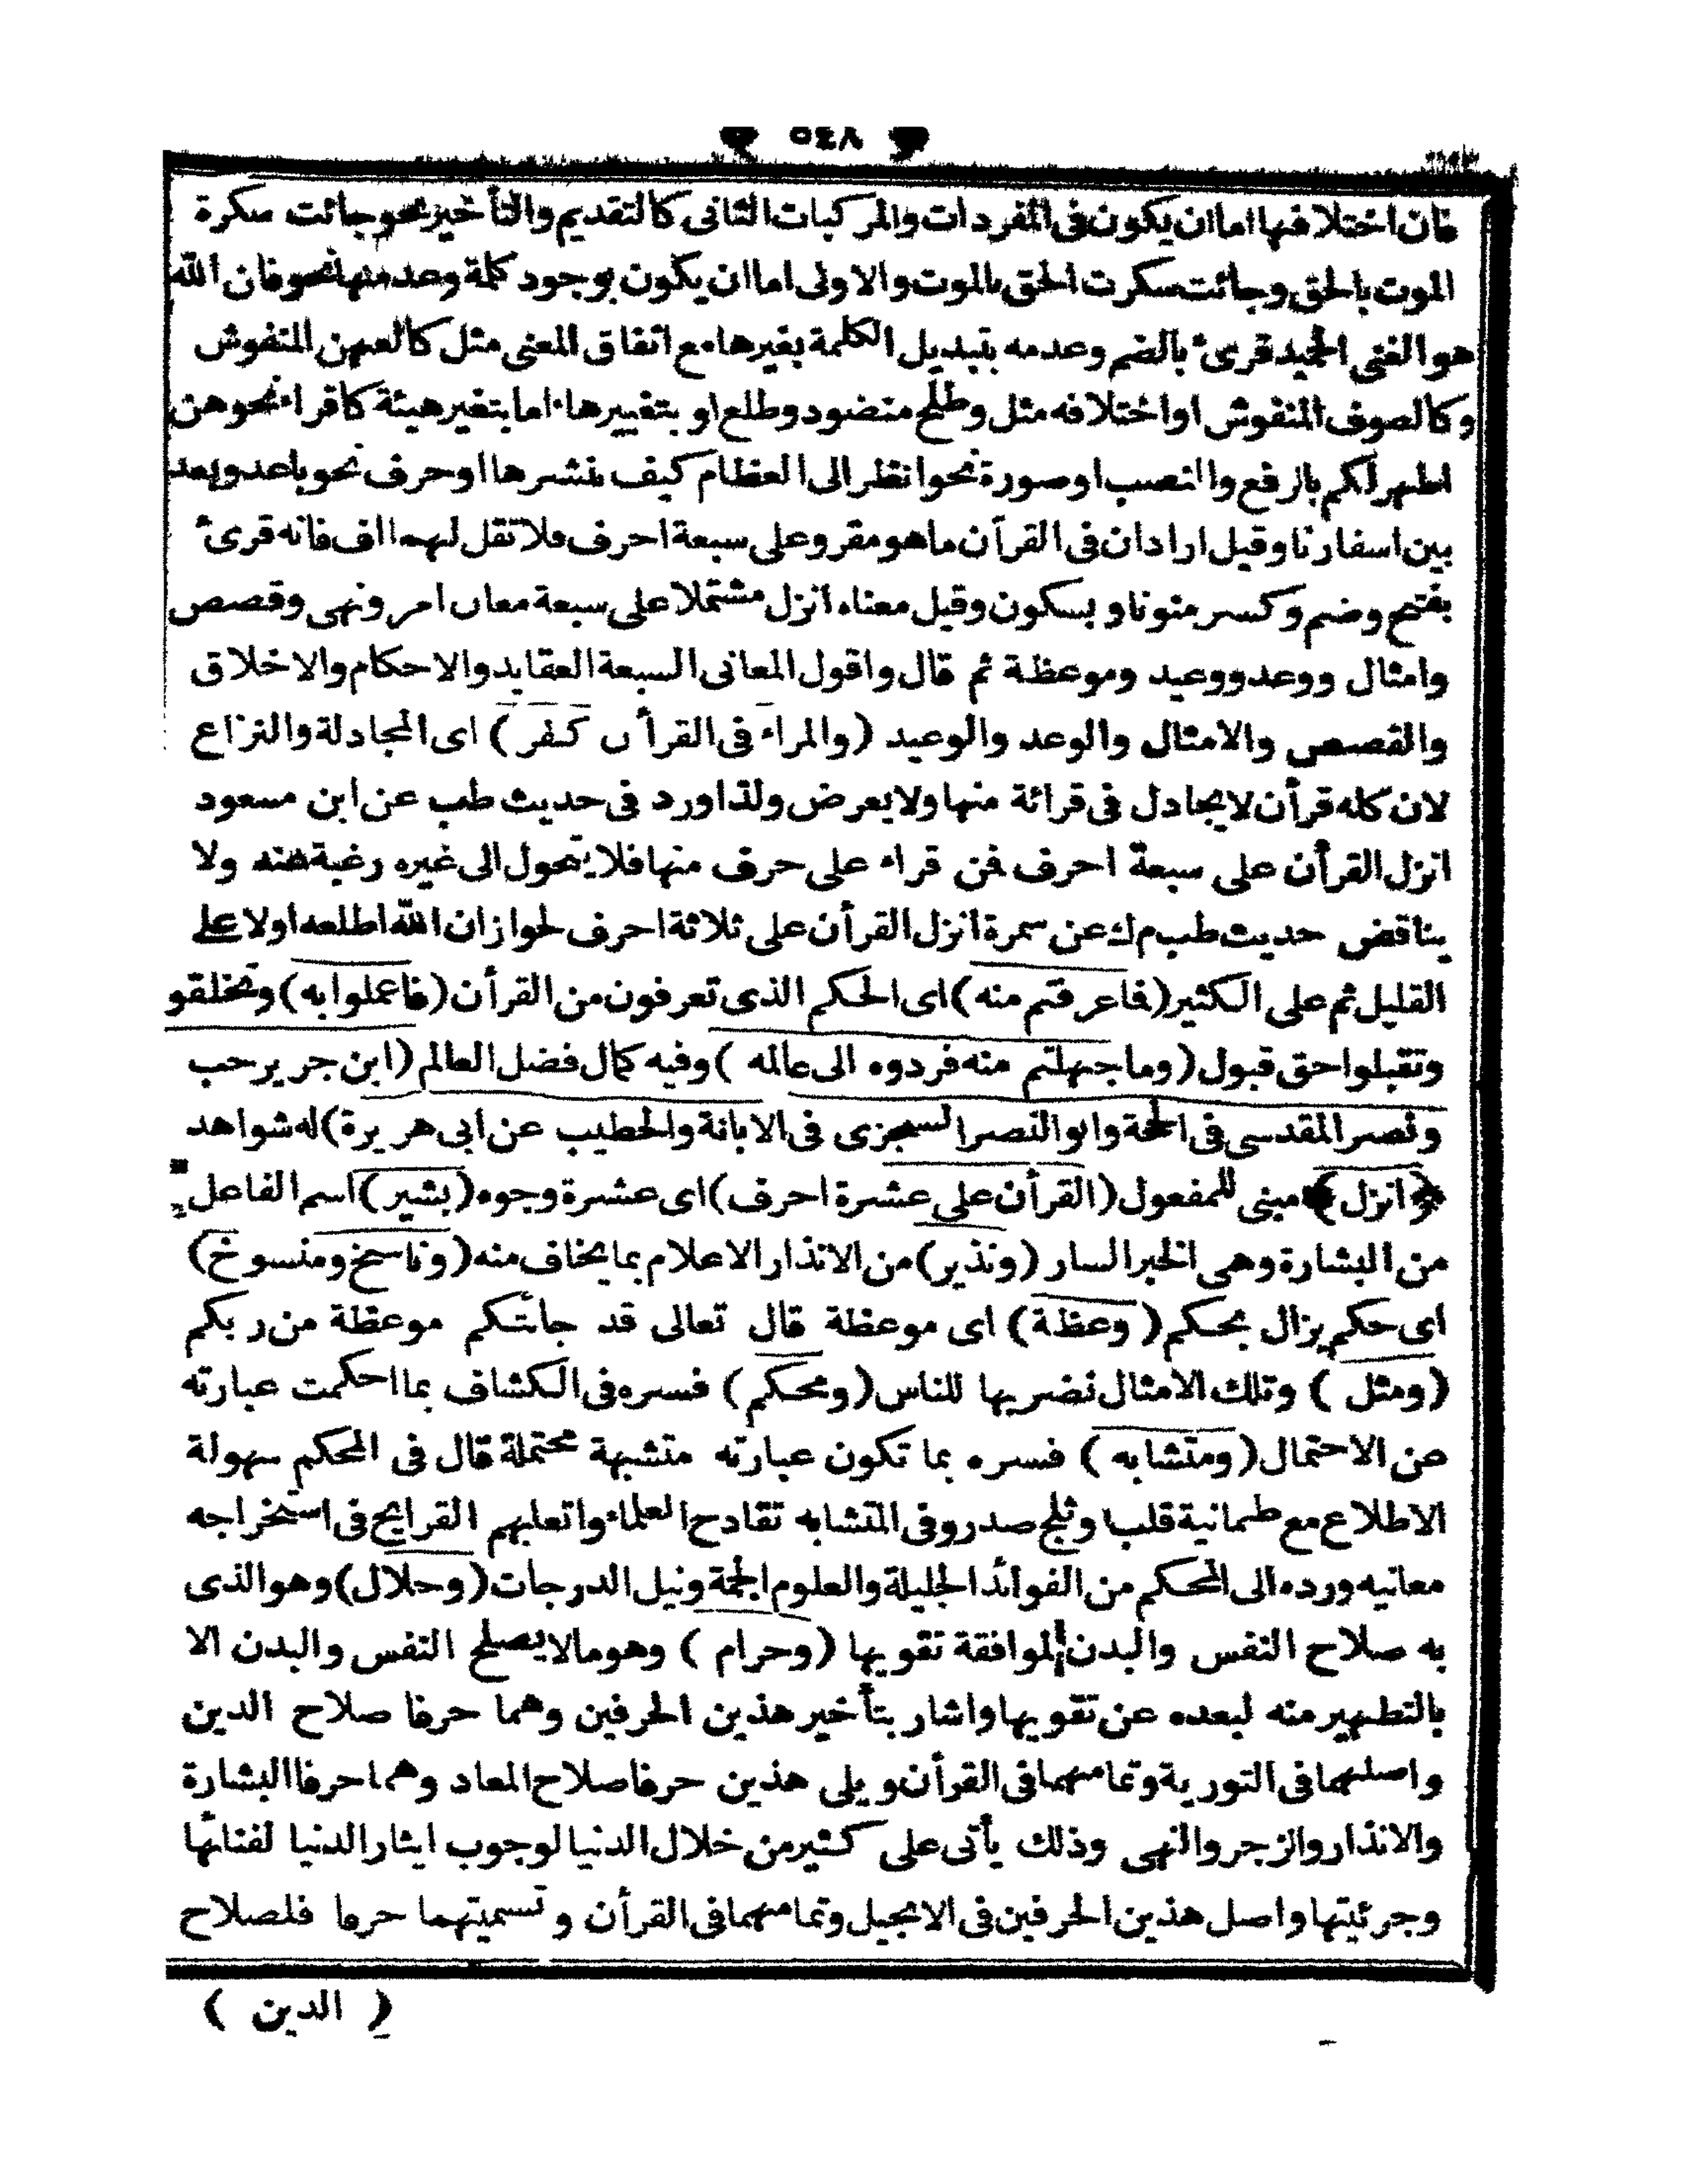 ٥٤٨
فان اختلافها اما ان يكون فى المفردات والمركبات الثانى كالتقديم والتأخير نحو وجائت سكرة
الموت بالحق وجائت سكرت الحق بالموت والاولى اما ان يكون بوجود كلمة وعدمها نحو فان الله
هو الغنى الحميد قرئ بالضم وعدمه بتبديل الكلمة بغيرها مع اتفاق المعنى مثل كالعهن المنفوش
وكالصوف المنفوش او اختلافه مثل وطلح منضود وطلع او بتغييرها اما بتغير هيئة كاقراء نحو هن
اطهر لكم بالرفع والنصب او صورة نحو انظر الى العظام كيف ننشرها او حرف نحو باعد وبعد
بين اسفارنا وقيل اراد ان فى القرآن ما هو مقرو على سبعة احرف فلا تقل لهما اف فانه قرئ
بفتح وضم وكسر منونا وبسكون وقيل معناه انزل مشتملا على سبعة معان امر ونهى وقصص
وامثال ووعد ووعيد وموعظة ثم قال واقول المعانى السبعة العقايد والاحكام والاخلاق
والقصص والامثال والوعد والوعيد (والمراء فى القرأن كفر) اى المجادلة والنزاع
لان كله قرأن لا يجادل فى قرائة منها ولا يعرض ولذا ورد فى حديث طب عن ابن مسعود
انزل القرأن على سبعة احرف فمن قراء على حرف منها فلا يتحول الى غيره رغبة عنه ولا
يناقض حديث طب م ك عن سمرة انزل القرأن على ثلاثة احرف لجواز ان الله اطلعه اولا على
القليل ثم على الكثير (فاعرفتم منه) اى الحكم الذى تعرفون من القرأن (فاعملوا به) وتخلقو
وتقبلوا حق قبول (وما جهلتم منه فردوه الى عالمه) وفيه كمال فضل العالم (ابن جرير حب
ونصر المقدسى فى الحجة وابو النصر السجزى فى الابانة والخطيب عن ابى هريرة) له شواهد
﴿انزل﴾ مبنى للمفعول (القرأن على عشرة احرف) اى عشرة وجوه (بشير) اسم الفاعل
من البشارة وهى الخبر السار (ونذير) من الانذار الاعلام بما يخاف منه (وناسخ ومنسوخ)
اى حكم يزال بحكم (وعظة) اى موعظة قال تعالى قد جائتكم موعظة من ربكم
(ومثل) وتلك الامثال نضربها للناس (ومحكم) فسره فى الكشاف بما احكمت عبارته
من الاحتمال (ومتشابه) فسره بما تكون عبارته متشبهة محتملة قال فى المحكم سهولة
الاطلاع مع طمانية قلب وثلج صدر وفى المتشابه تقادح العلماء واتعابهم القرايح فى استخراجه
معانيه ورده الى المحكم من الفوائد الجليلة والعلوم الجمة ونيل الدرجات (وحلال) وهو الذى
به صلاح النفس والبدن لموافقة تقويها (وحرام) وهو مالا يصلح النفس والبدن الا
بالتطهير منه لبعده عن تقويها واشار بتأخير هذين الحرفين وهما حرفا صلاح الدين
واصلهما فى التورية وتمامهما فى القرأن ويلى هذين حرفا صلاح المعاد وهما حرفا البشارة
والانذار والزجر والنهى وذلك يأتى على كثير من خلال الدنيا لوجوب ايثار الدنيا لفنائها
وجزئيتها واصل هذين الحرفين فى الانجيل وتمامهما فى القرأن وتسميتهما حرفا فلصلاح
(الدين)